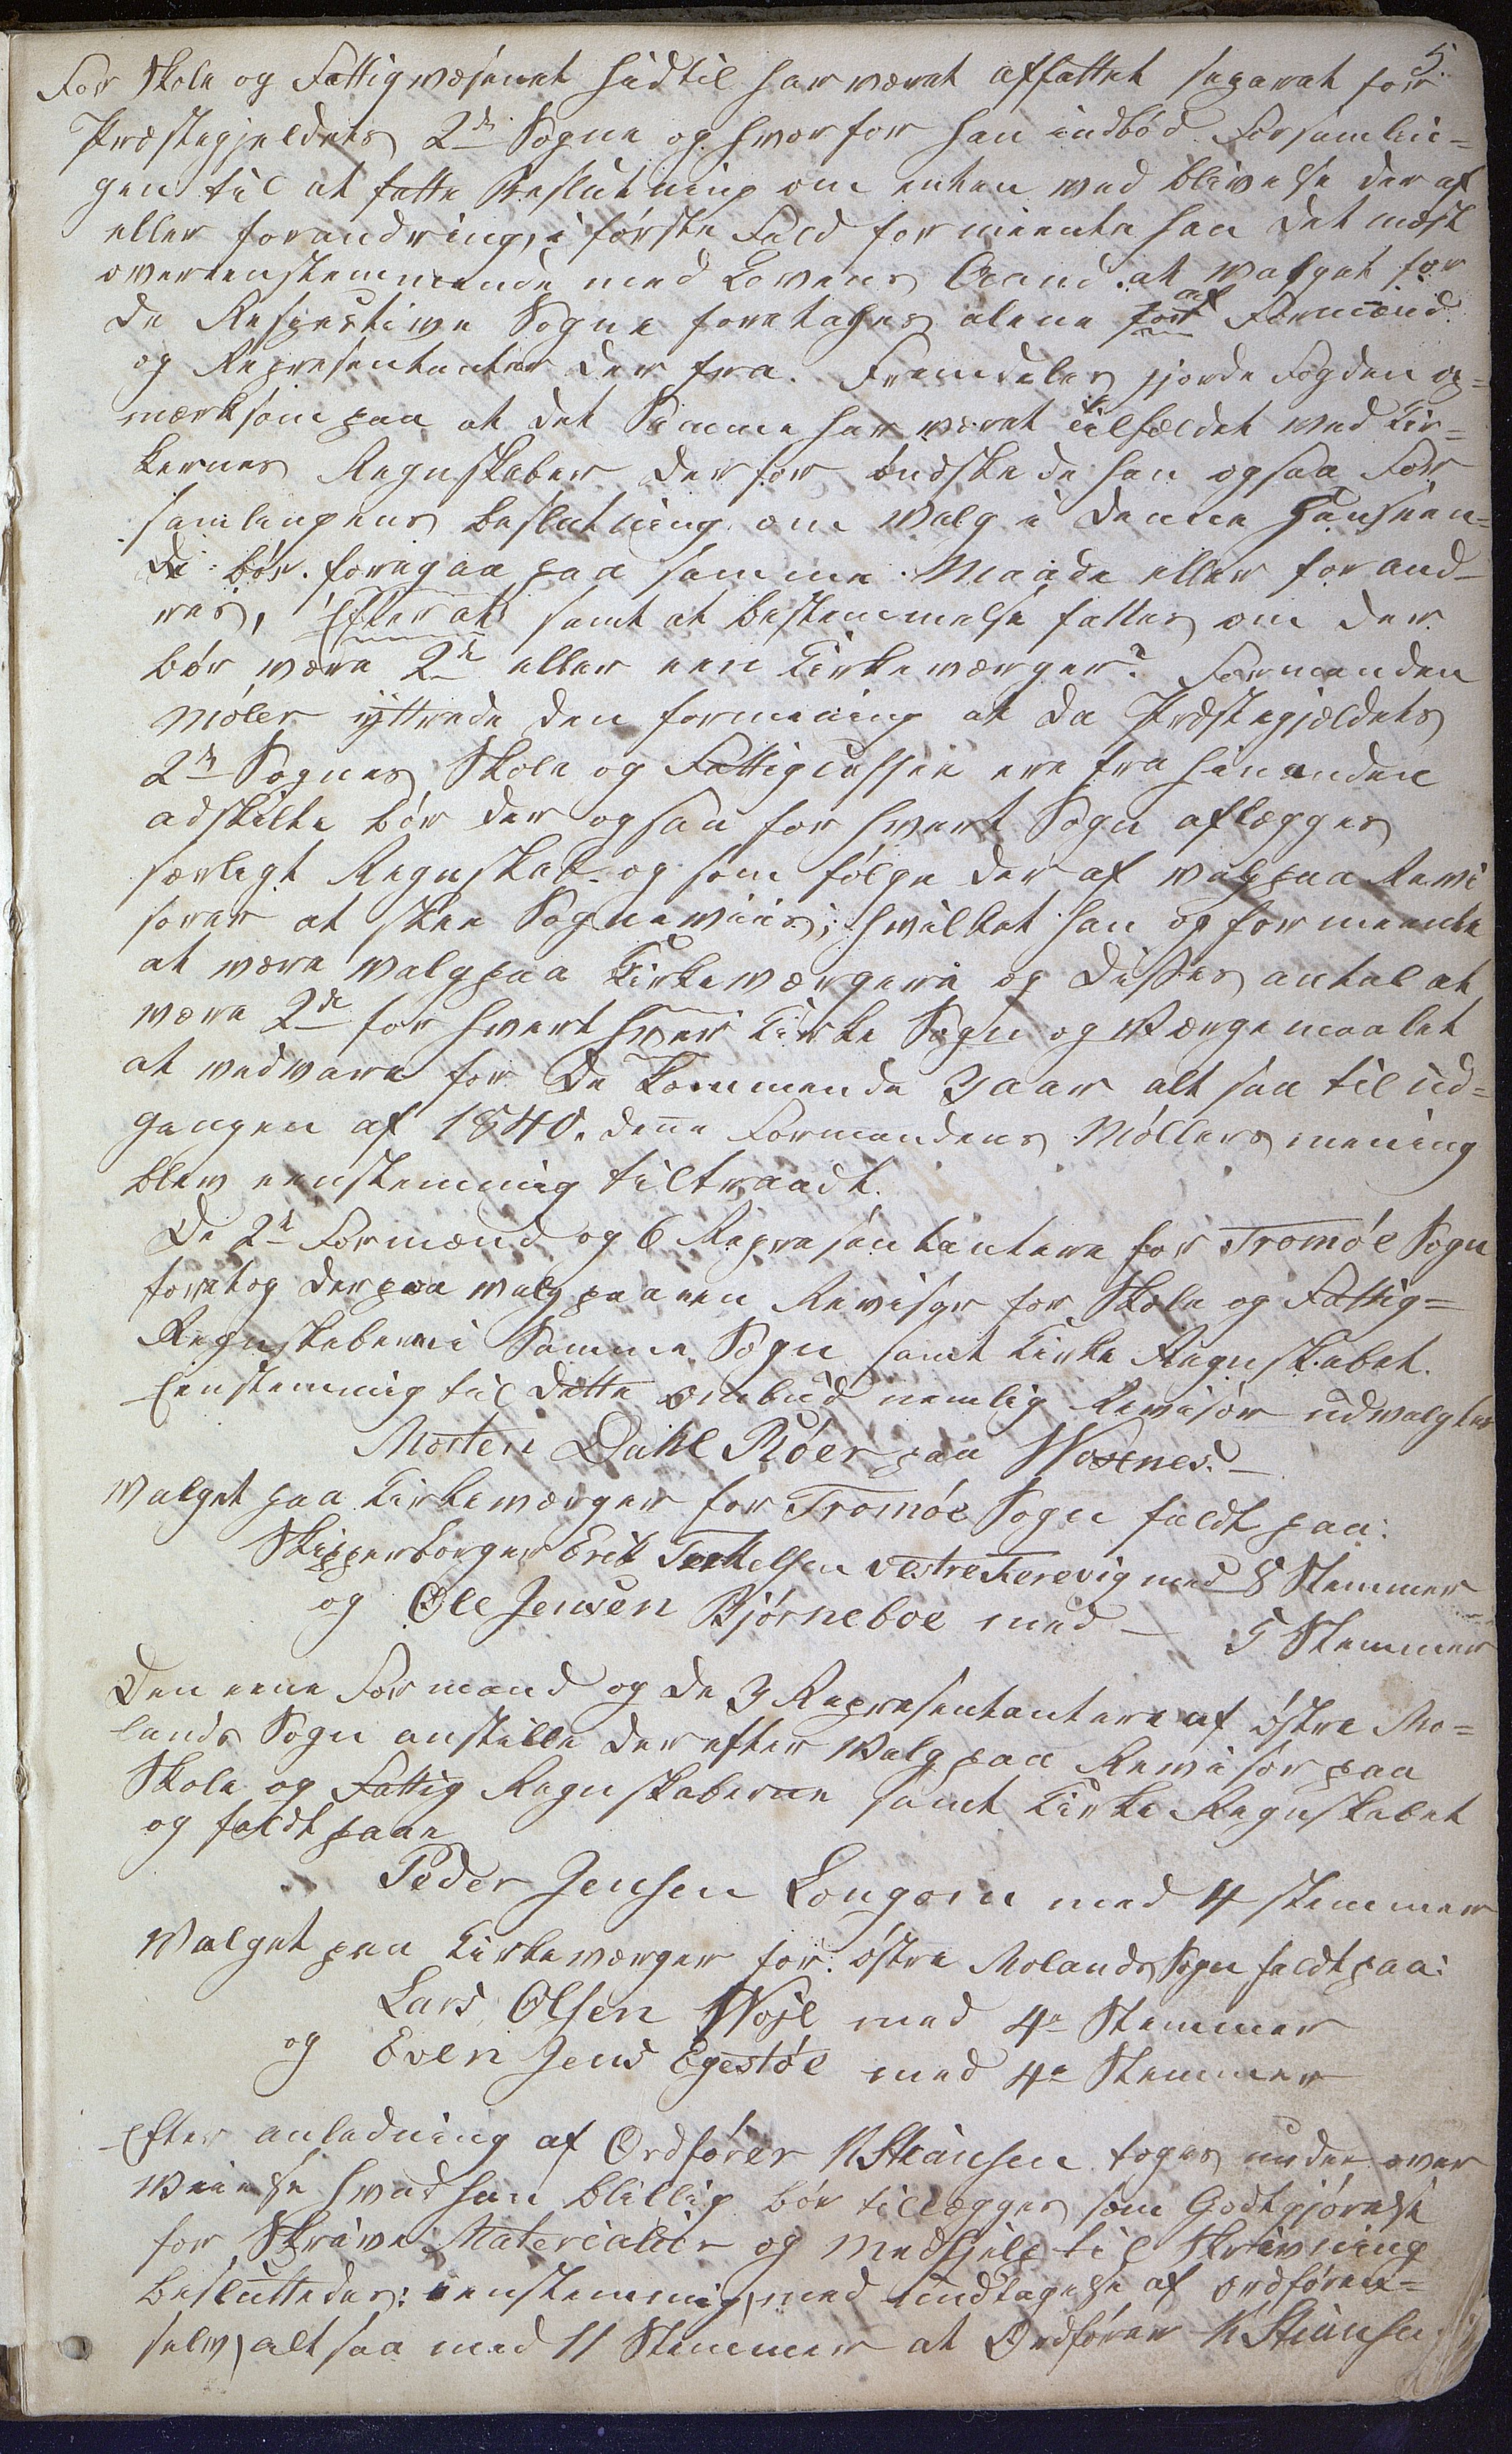 5.
For Skole og Fattigvæsenet hidtil har været affattet separat for
Præstegjeldets 2de Sogne og hvorfor han indbød Forsamlin=
gen til at fatte Beslutning om enten ved blivelse der af
eller forandring, i første Fald formeente han det mest
overeenstemmende med Lovens Aand at valget for
de Respective Sogne foretages alene for af Formænd
og Repræsentanter der fra. Fremdeles gjorde Fogden op=
mærksom paa at det Samme har været Tilfældet med Kir=
kernes Regnskaber derfor ønskede han ogsaa For
samlingens beslutning om Valg i denne Henseen=
de bør foregaa paa samme Maade eller forand=
res, Efter at samt at bestemmelse fattes om der
bør være 2de eller een Kirkeværger? Formanden
Møler yttrede den formening at da Præstegjældets
2de Sognes Skole og Fattigcasse ere fra hinanden
adskilte bør der ogsaa for hvert Sogn aflægges
særligt Regnskab og som følge der af valg paa Revi
sorer at skee Sogneviis; hvilket han og formeente
at være valg paa Kirkeværgere og disses antal at
være 2de for hvert hver Kirke Sogn og Værgemaalet
at vedvare for De kommende 3 aar alt saa til ud=
gangen af 1840. denne Formandens Møllers mening
blev eenstemmig tiltraadt.
De 2de Formænd og 6 Repræsentantere for Tromøe Sogn
foretog derpaa valg paa een Revisor for Skole og Fattig=
Regnskaberne i Samme Sogn samt Kirke Regnskabet.
Eenstemmig til dette ombud nemlig Revisor udvalgtes
Morten Dahl Røer paa Woxnes. —
Valget paa Kirkeværger for Tromøe Sogn faldt paa:
Skipperborger Erik Terkelsen Vestre Torevig med 8 Stemmer
og Ole Jensen Bjørneboe med — 5 Stemmer
Den eene Formand og de 3 Repræsentantere af østre Mo=
lands Sogn anstille derefter Valg paa Revisor paa
Skole og Fattig Regnskaberne samt Kirke Regnskabet
og faldt paa
Peder Jensen Longom med 4 stemmer
Valget paa Kirkeværger for østre Molands Sogn faldt paa:
Lars Olsen Woje med 4re Stemmer
og Even Jens Egestøl med 4re Stemmer
Efter anledning af Ordfører Stiansen toges under over
veielse hvad han billig bør tillægges som Godtgjørelse
for Skrive Materialier og Medhjelp til Skrivning
besluttedes: eenstemmig, med undtagelse af ordføren=
selv, alt saa med 11 Stemmer at Ordfører Stiansen